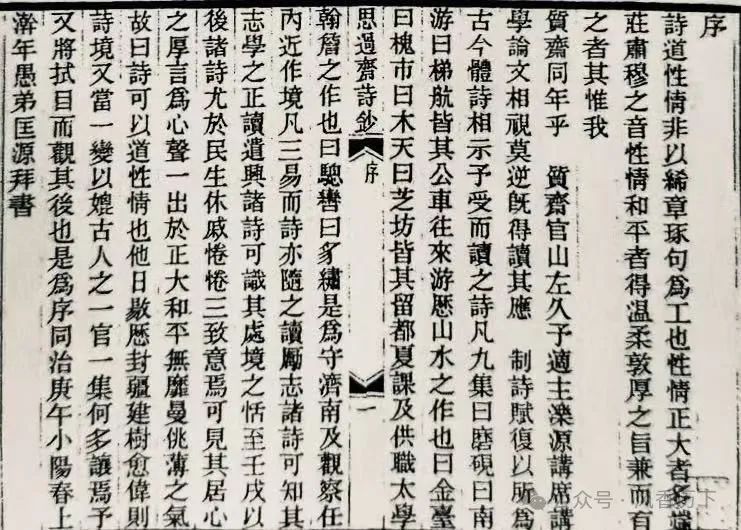 序
詩道性情非以絺章琢句為工也性情正大者多端
莊肅穆之音性情和平者得温柔敦厚之旨兼而有
之者其惟我
質齋同年乎 質齋官山左久予適主濼源講席講
學論文相視莫逆旣得讀其應 制詩賦復以所為
古今體詩相示予受而讀之詩凡九集曰磨硯曰南
游曰梯航皆其公車往來游歷山水之作也曰金臺
曰槐市曰木天曰芝坊皆其留都夏課及供職太學
思過齋詩鈔 序 一
翰詹之作也曰驄轡曰豸繡是為守濟南及觀察任
內近作境凡三易而詩亦隨之讀勵志諸詩可知其
志學之正讀遣興諸詩可識其處境之恬至壬戌以
後諸詩尤於民生休戚惓惓三致意焉可見其居心
之厚言為心聲一出於正大和平無靡曼佻薄之氣
故曰詩可以道性情也他日敭歷封疆建樹愈偉則
詩境又當一變以媲古人之一官一集何多讓焉予
又將拭目而觀其後也是為序同治庚午小陽春上
澣年愚弟匡源拜書
众号
下